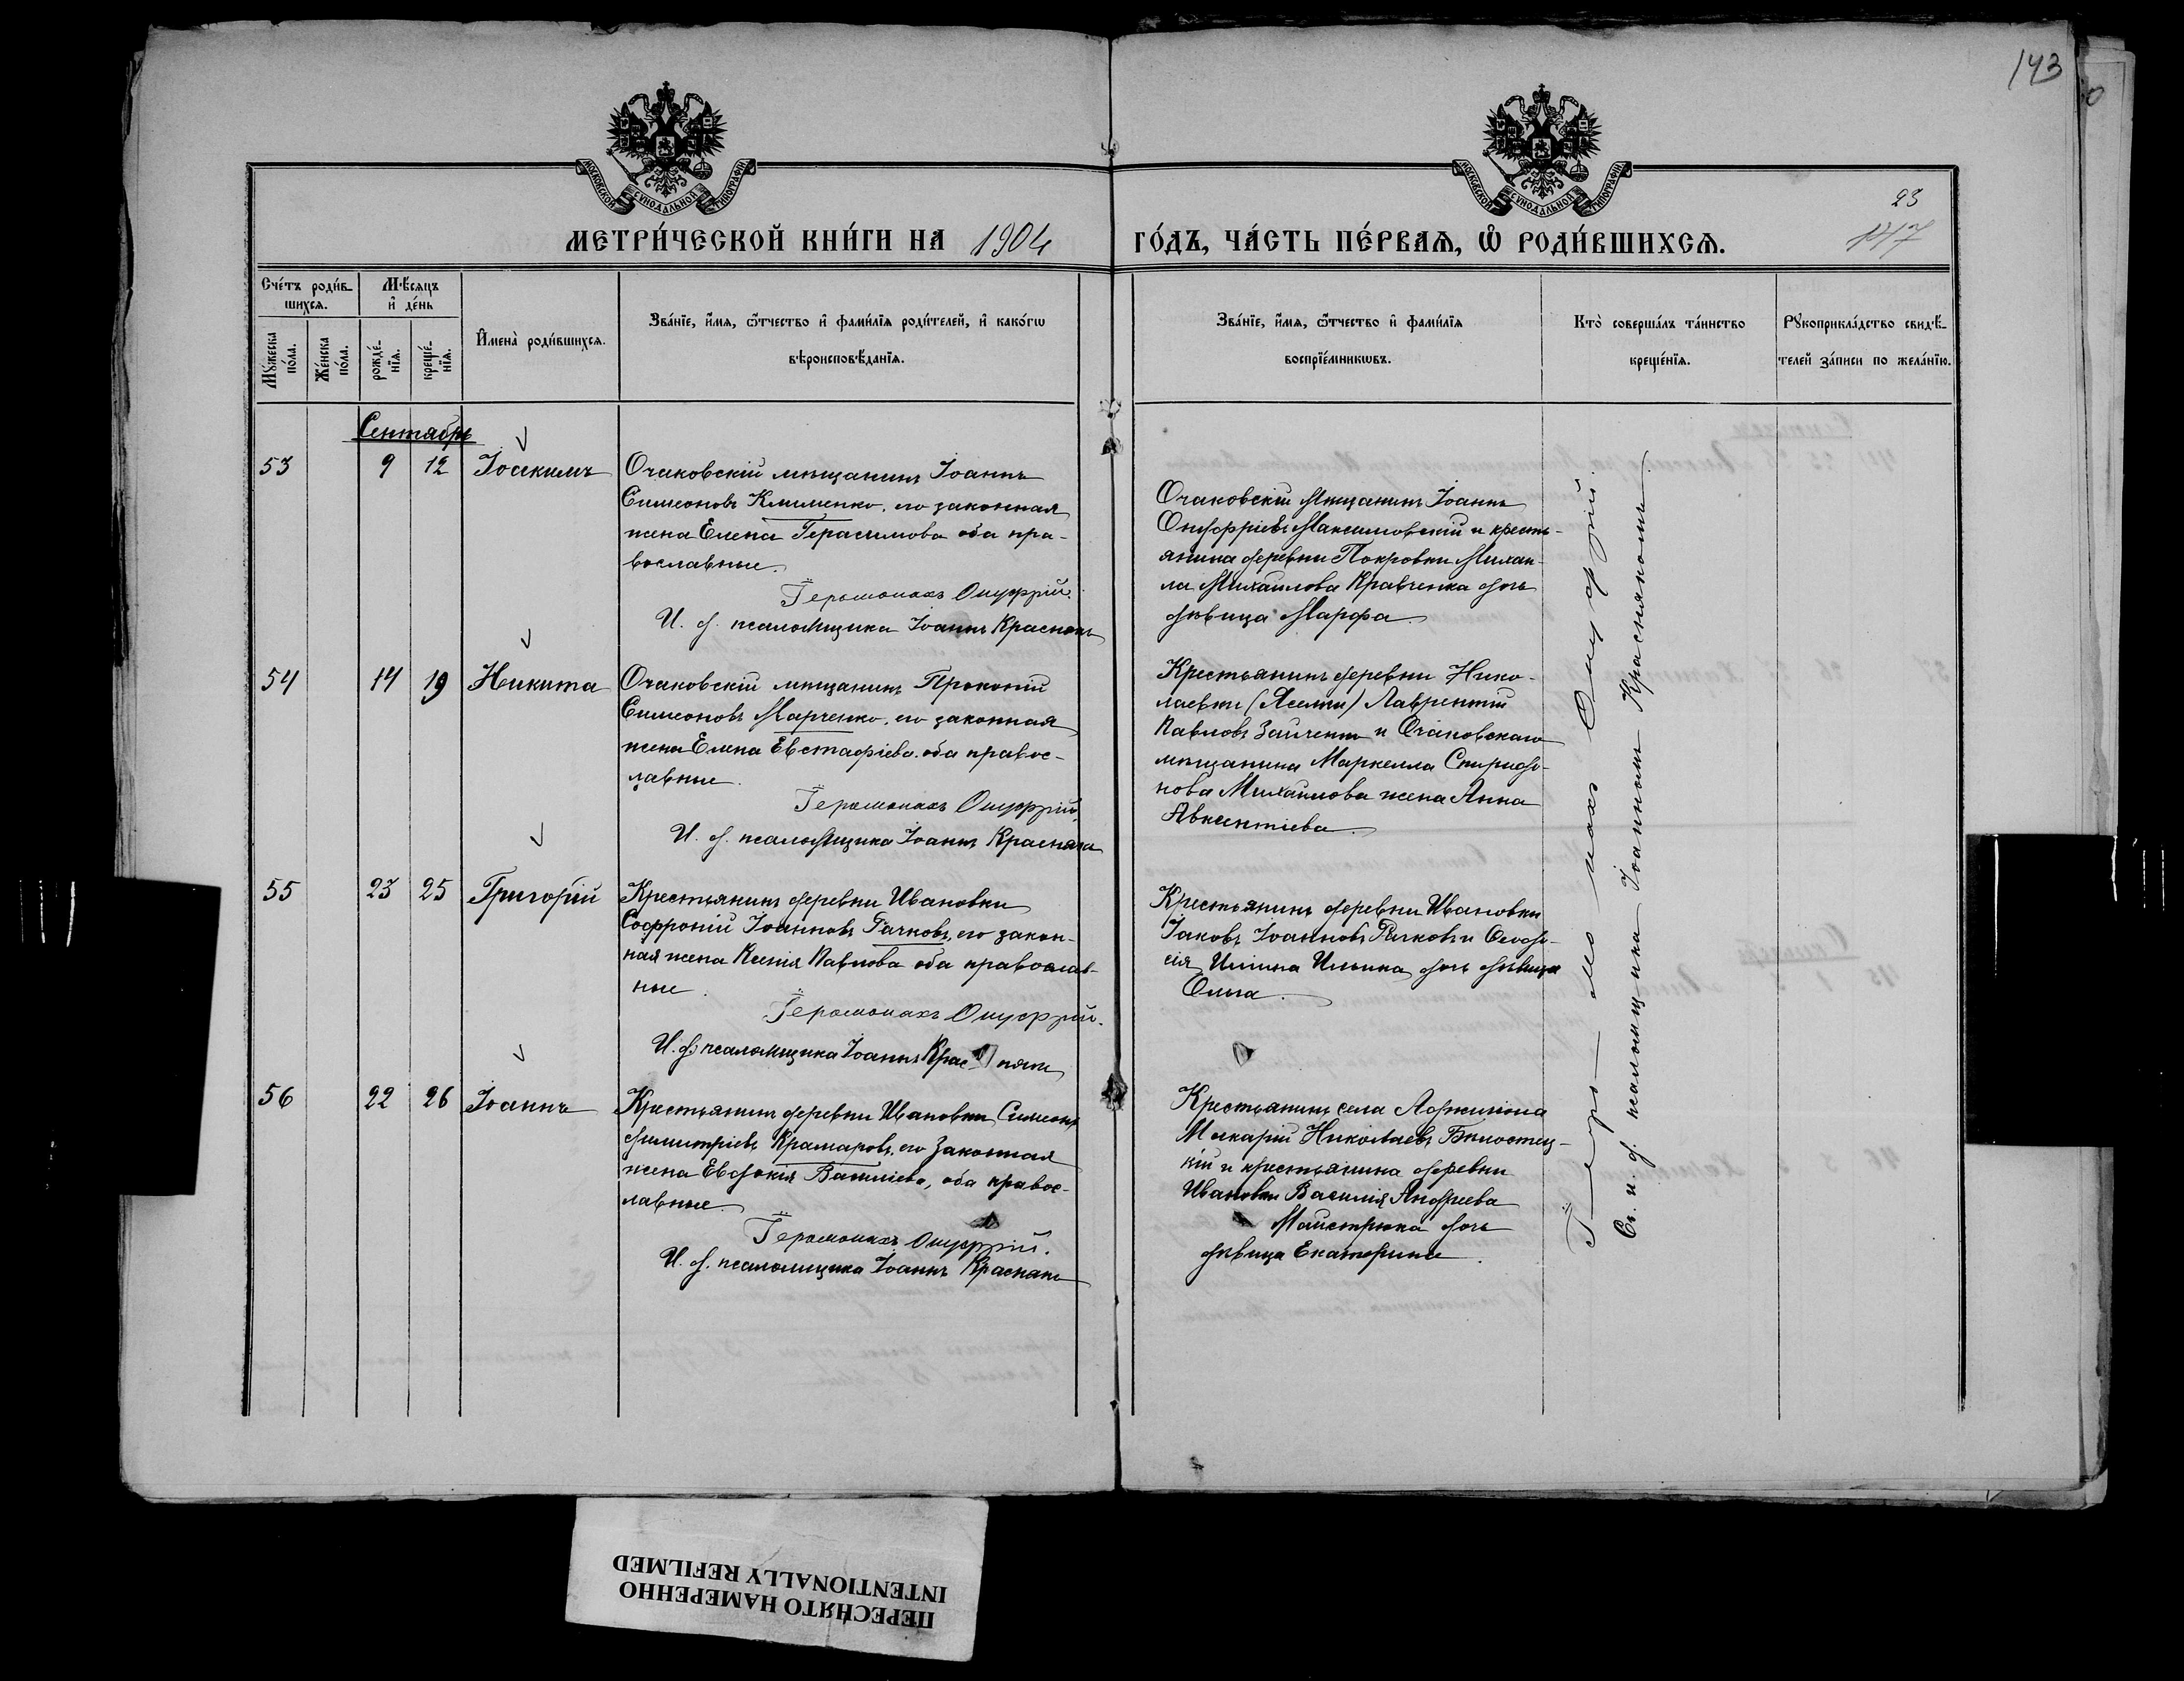 143
МОСКОВСКОЙ СѴНОДАЛЬНОЙ ТИПОГРАФІИ
МОСКОВСКОЙ СѴНОДАЛЬНОЙ ТИПОГРАФІИ
23
147
МЕТРИ́ЧЕСКОЙ КНИ́ГИ НА 1904 ГО́ДЪ, ЧА́СТЬ ПЕ́РВАѦ, Ѡ РОДИ́ВШИХСѦ.
Сче́тъ роди́в-
шихсѧ.
Мѣ́сѧцъ
и҆ де́нь
Мꙋ́жеска
по́ла.
Же́нска
по́ла.
рожде́-
нїѧ.
креще́-
нїѧ.
И҆мена̀ роди́вшихсѧ.
Зва́нїе, и҆́мѧ, ѻ҆́тчество и҆ фами́лїѧ роди́телей, и҆ како́гѡ
вѣроисповѣ́данїѧ.
Зва́нїе, и҆́мѧ, ѻ҆́тчество и҆ фами́лїѧ
воспрїе́мникѡвъ.
Кто̀ соверша́лъ та́инство
креще́нїѧ.
Рꙋкоприкла́дство свидѣ́-
телей за́писи по жела́нїю.
Сентябрь
53 9 12 Іоакимъ
Очаковскій мѣщанинъ Іоаннъ
Симеоновъ Клименко, его законная
жена Елена Герасимова оба пра-
вославные.
Іеромонахъ Онуфрій.
И. д. псаломщика Іоаннъ Краснякъ
Очаковскій мѣщанинъ Іоаннъ
Онуфріевъ Максимовскій и кресть-
янина деревни Покровки Михаи-
ла Михаилова Кравченка дочь
дѣвица Марфа.
54 14 19 Никита
Очаковскій мѣщанинъ Прокопій
Симеоновъ Марченко, его законная
жена Елена Евстафіева оба правос-
лавные.
Іеромонахъ Онуфрій.
И. д. псаломщика Іоаннъ Краснякъ
Крестьянинъ деревни Нико-
лаевки (Яселки) Лаврентій
Павловъ Зайченко и Очаковскаго
мѣщанина Маркелла Спиридо-
нова Михаилова жена Анна
Авксентіева.
55 23 25 Григорій
Крестьянинъ деревни Ивановки
Софроній Іоанновъ Рачковъ, его закон-
ная жена Ксенія Павлова оба православ-
ные.
Іеромонахъ Онуфрій.
И. д. псаломщика Іоаннъ Краснякъ
Крестьянинъ деревни Ивановки
Іаковъ Іоанновъ Рачковъ и Феодо-
сія Ильина дочь дѣвица
Ольга.
56 22 26 Іоаннъ
Крестьянинъ деревни Ивановки Симеонъ
Димитріевъ Крамаровъ, его законная
жена Евдокія Василіева, оба правос-
лавные.
Іеромонахъ Онуфрій.
И. д. псаломщика Іоаннъ Краснякъ
Крестьянинъ села Аджигіола
Макарій Николаевъ Бѣлостец-
кій и крестьянина деревни
Ивановки Василія Андреева
Майстрюка дочь
дѣвица Екатерина.
Іеромонахъ Онуфрій.
Съ и. д. псаломщика Іоанномъ Краснякомъ.
ПЕРЕСНЯТО НАМЕРЕННО
INTENTIONALLY REFILMED